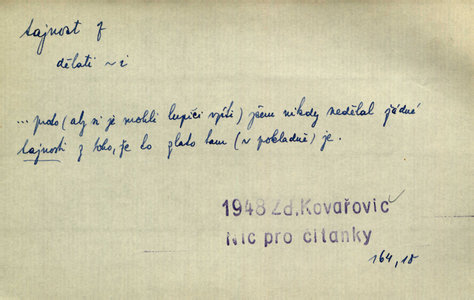 tajnost f
dělati ~i
... proto (aby si je mohli lupiči vzíti) jsem nikdy nedělal žádné
tajnosti z toho, že to zlato tam (v pokladně) je.
1948 Zd. Kovařovic
Nic pro čítanky
164, 18